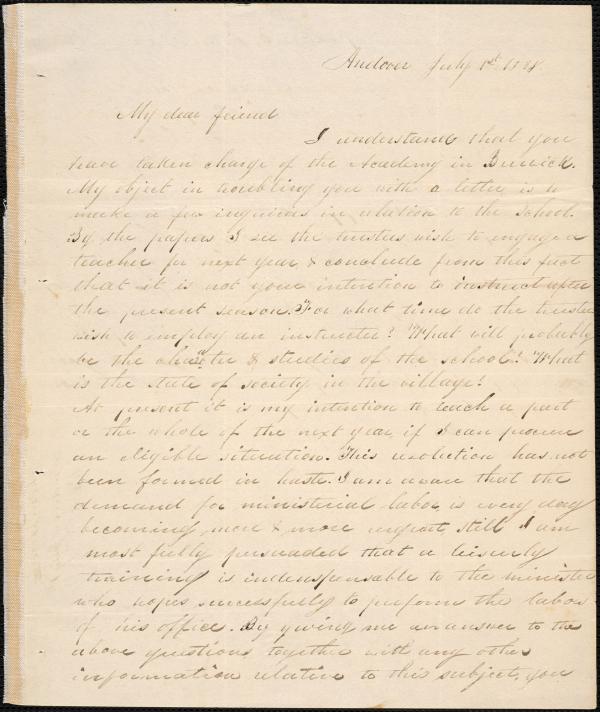 Andover July 1st 1828.
My dear friend
I understand that you
have taken charge of the Academy in Berwick.
My object in troubling you with a letter is to
make a few inquiries in relation to the School.
By the papers I see the trustees wish to engage a
teacher for next year & conclude from this fact
that it is not your intention to instruct after
the present season. For what time do the trustees
wish to employ an instructer? What will probably
be the character & studies of the school? What
is the state of society in the village?
At present it is my intention to teach a part
or the whole of the next year if I can procure
an eligible situation. This resolution has not
been formed in haste. I am aware that the
demand for ministerial labor is every day
becoming more & more urgent, still I am
most fully persuaded that a leisurely
training is indenspensable to the minister
who hopes successfully to perform the labors
of his office. By giving me an answer to the
above questions together with any other
information relative to this subject, you